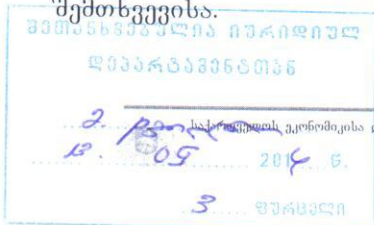 შემთხვევისა.
შეთანხმებულია იურიდიულ
დეპარტამენტთან
საქართველოს ეკონომიკისა
09 2014 წ.
3 ფურცელი